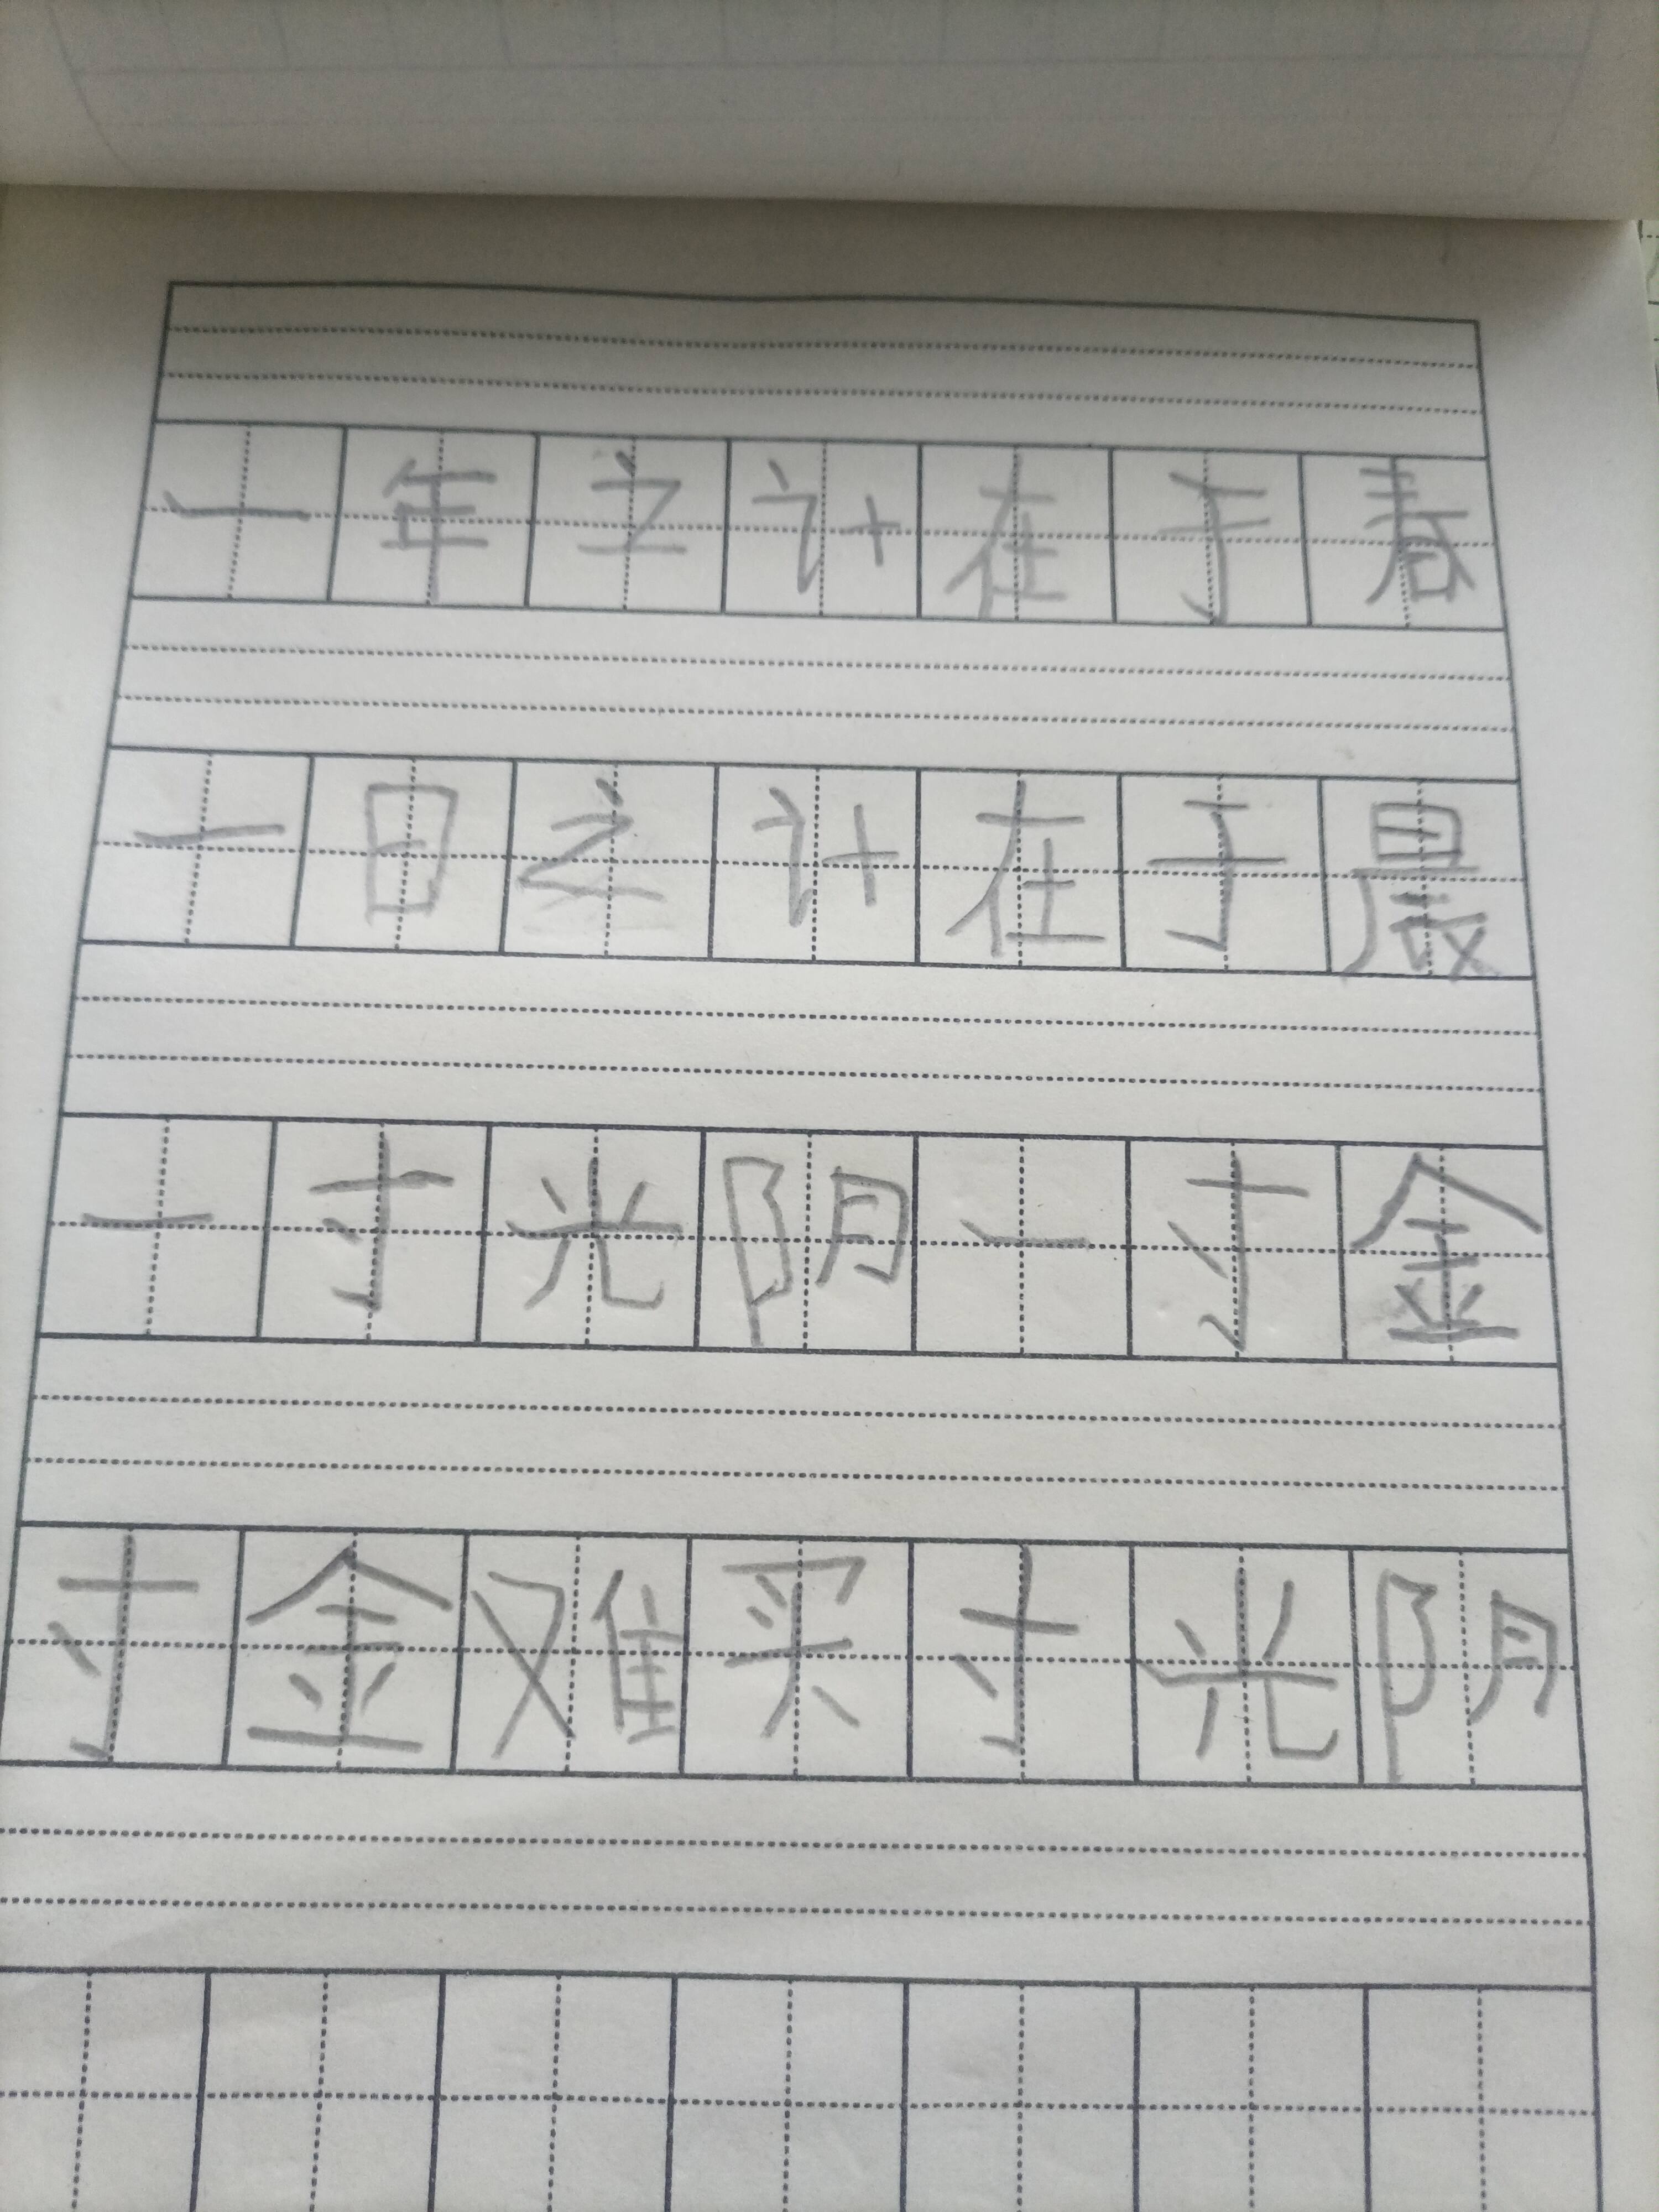 一年之计在于春
一日之计在于晨
一寸光阴一寸金
寸金难买寸光阴